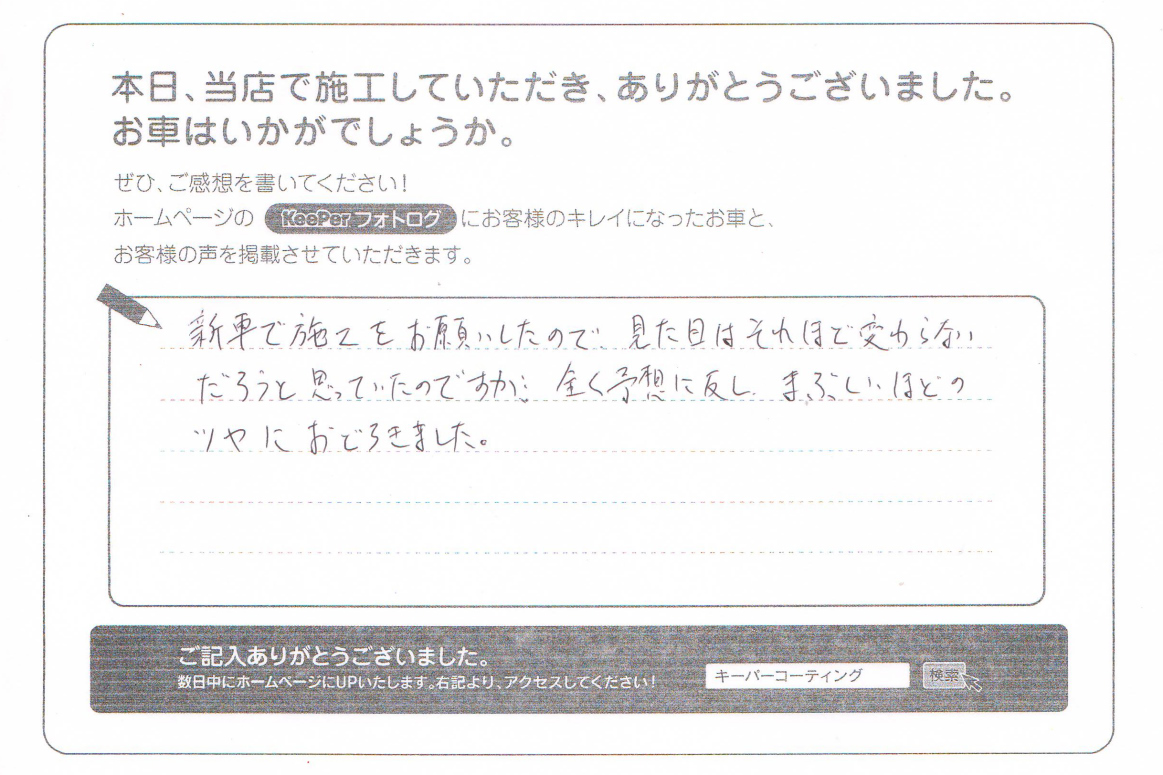 本日、当店で施工していただき、ありがとうございました。
お車はいかがでしょうか。
ぜひ、ご感想を書いてください！
ホームページの KeePer フォトログ にお客様のキレイになったお車と、
お客様の声を掲載させていただきます。
新車で施工をお願いしたので、見た目はそれほど変わらない
だろうと思っていたのですが、全く予想に反し、まぶしいほどの
ツヤにおどろきました。
ご記入ありがとうございました。
数日中にホームページにUPいたします。右記より、アクセスしてください！
キーパーコーティング 検索